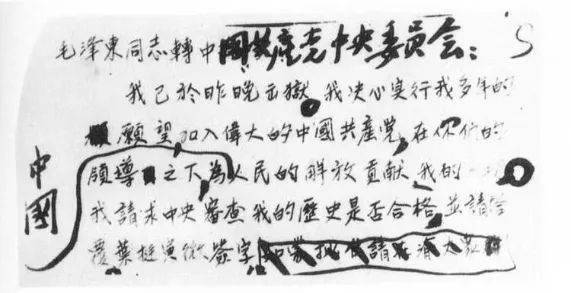 毛澤東同志轉中國共產党中央委員会：
我已於昨晚出獄 我决心实行我多年的
願望 加入偉大的中國共產党 在你们的
領導之下為人民的解放貢獻我的一
我請求中央審查我的歷史是否合格 並請答
覆 葉挺 簽字
中國